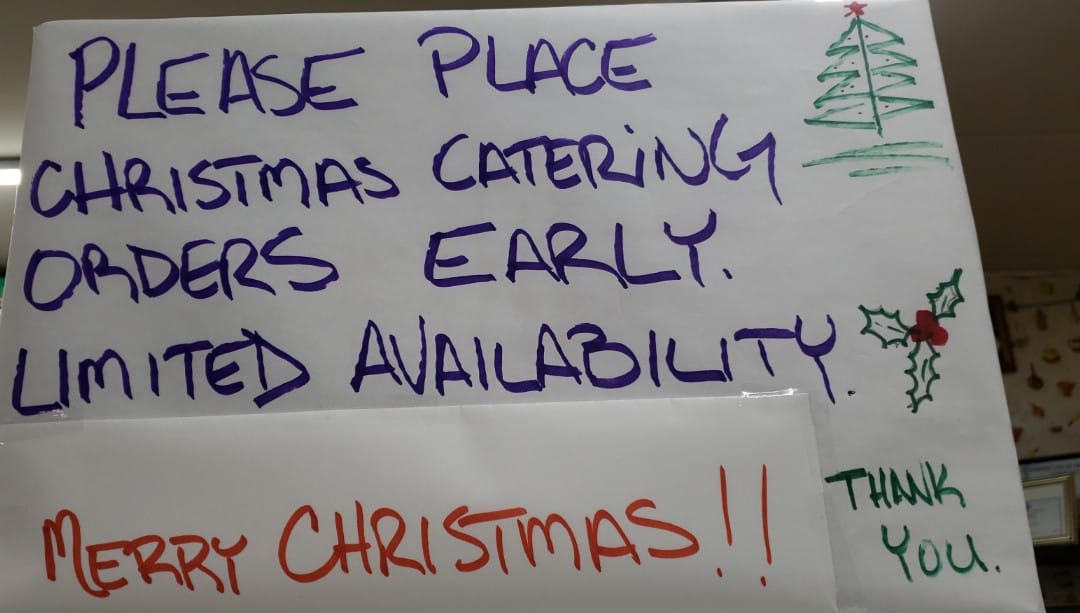 PLEASE PLACE
CHRISTMAS CATERiNG
ORDERS EARLY.
LIMITED AVAILABILITY.
MERRY CHRISTMAS!!
THANK
YOU.